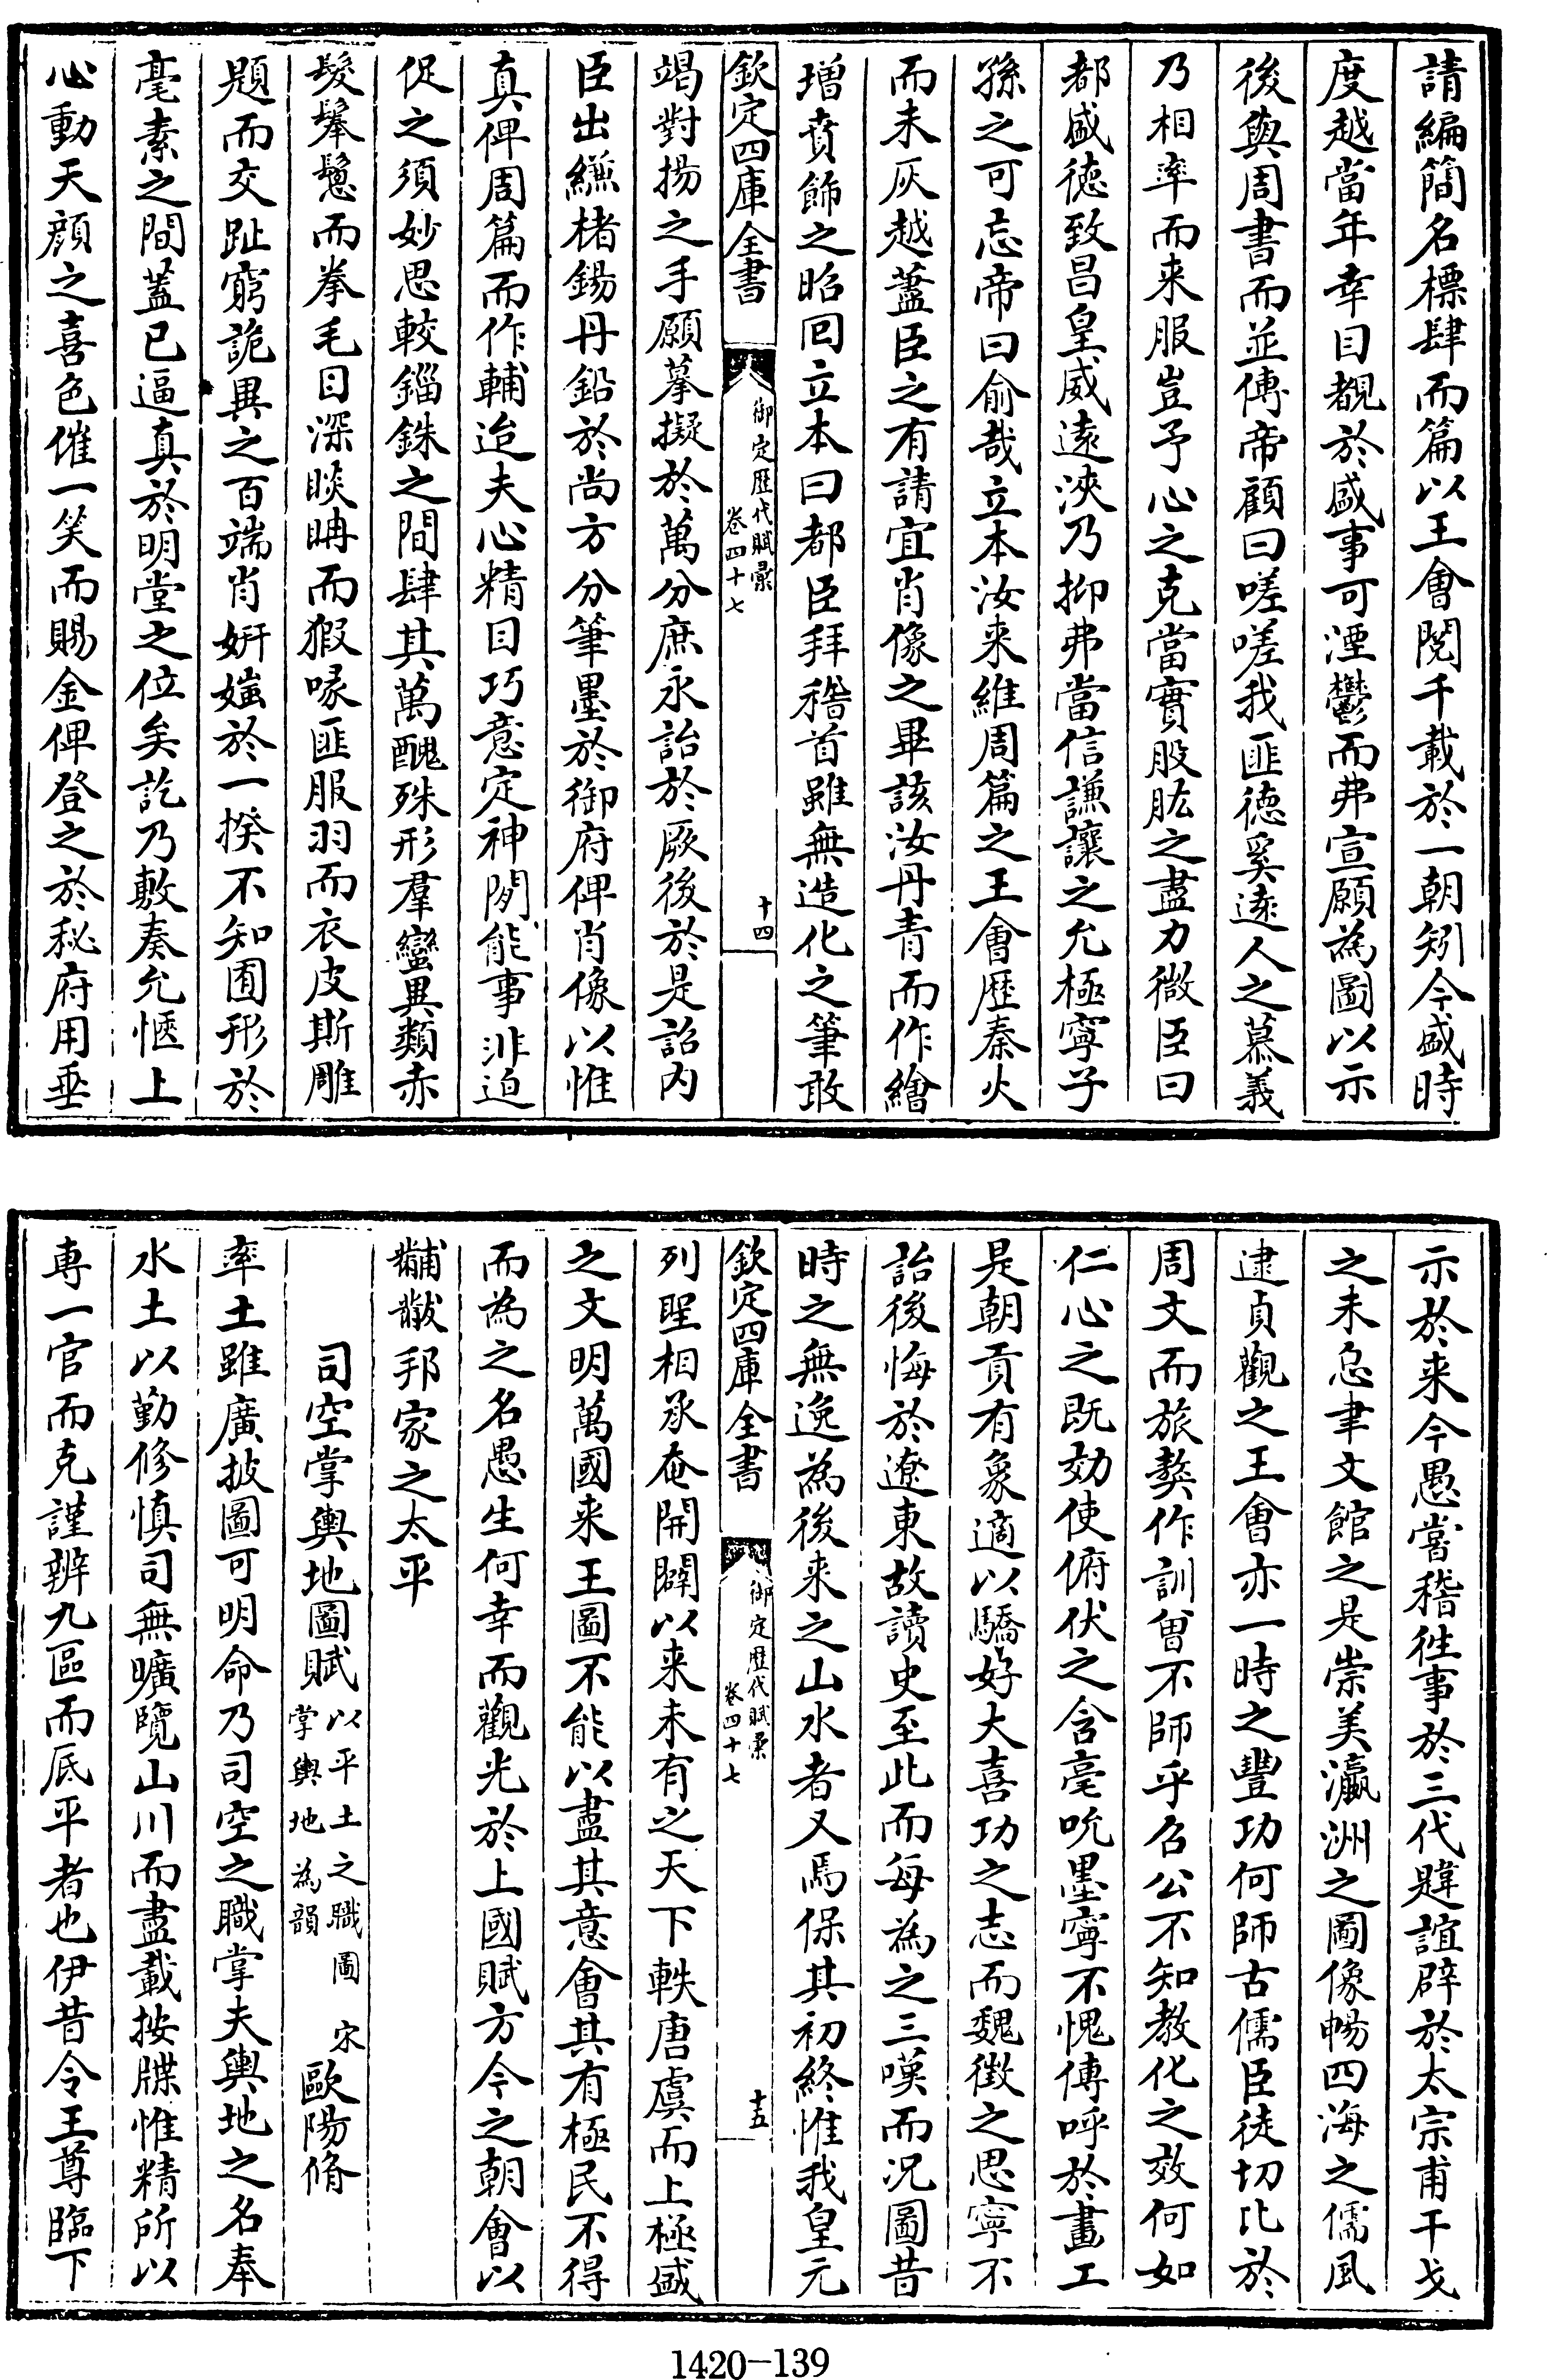 請編簡名標肆而篇以王會閱千載於一朝矧今盛時
度越當年幸目覩於盛事可湮鬱而弗宣願為圖以示
後與周書而並傳帝顧曰嗟嗟我匪徳奚遠人之慕義
乃相率而来服豈予心之克當實股肱之盡力微臣曰
都盛徳致昌皇威逺浹乃抑弗當信謙讓之允極寧子
孫之可忘帝曰俞哉立本汝来維周篇之王會歴秦火
而未灰越藎臣之有請宜肖像之畢該汝丹青而作繪
增賁飾之昭囘立本曰都臣拜稽首雖無造化之筆敢
欽定四庫全書
御定歴代賦彙
卷四十七
十四
竭對揚之手願摹擬於萬分庶永詒於厥後於是詔内
臣出縑楮錫丹鉛於尚方分筆墨於御府俾肖像以惟
真俾周篇而作輔迨夫心精目巧意定神閒能事非迫
促之須妙思較錙銖之間肆其萬醜殊形羣蠻異類赤
髮鬈鬘而拳毛目深睒䀡而猳喙匪服羽而衣皮斯雕
題而交趾窮詭異之百端肖妍媸於一揆不知囿形於
毫素之間蓋已逼真於明堂之位矣訖乃敷奏允愜上
心動天顔之喜色催一笑而賜金俾登之於秘府用垂
示於来今愚嘗稽徃事於三代韙誼辟於太宗甫干戈
之未怠聿文館之是崇美瀛洲之圖像暢四海之儒風
逮貞觀之王會亦一時之豐功何師古儒臣徒切比於
周文而旅獒作訓曽不師乎召公不知教化之效何如
仁心之既効使俯伏之含毫吮墨寧不愧傅呼於畫工
是朝貢有象適以驕好大喜功之志而魏徴之思寧不
詒後悔於遼東故讀史至此而每為之三嘆而况圖昔
時之無逸為後来之山水者又焉保其初終惟我皇元
欽定四庫全書
御定歴代賦彙
卷四十七
十五
列聖相承奄開闢以来未有之天下軼唐虞而上極盛
之文明萬國来王圖不能以盡其意會其有極民不得
而為之名愚生何幸而觀光於上國賦方今之朝會以
黼黻邦家之太平
司空掌輿地圖賦以平土之職圖掌輿地為韻 宋歐陽脩
率土雖廣披圖可明命乃司空之職掌夫輿地之名奉
水土以勤修慎司無曠覽山川而盡載按牒惟精所以
専一官而克謹辨九區而底平者也伊昔令王尊臨下
1420-139